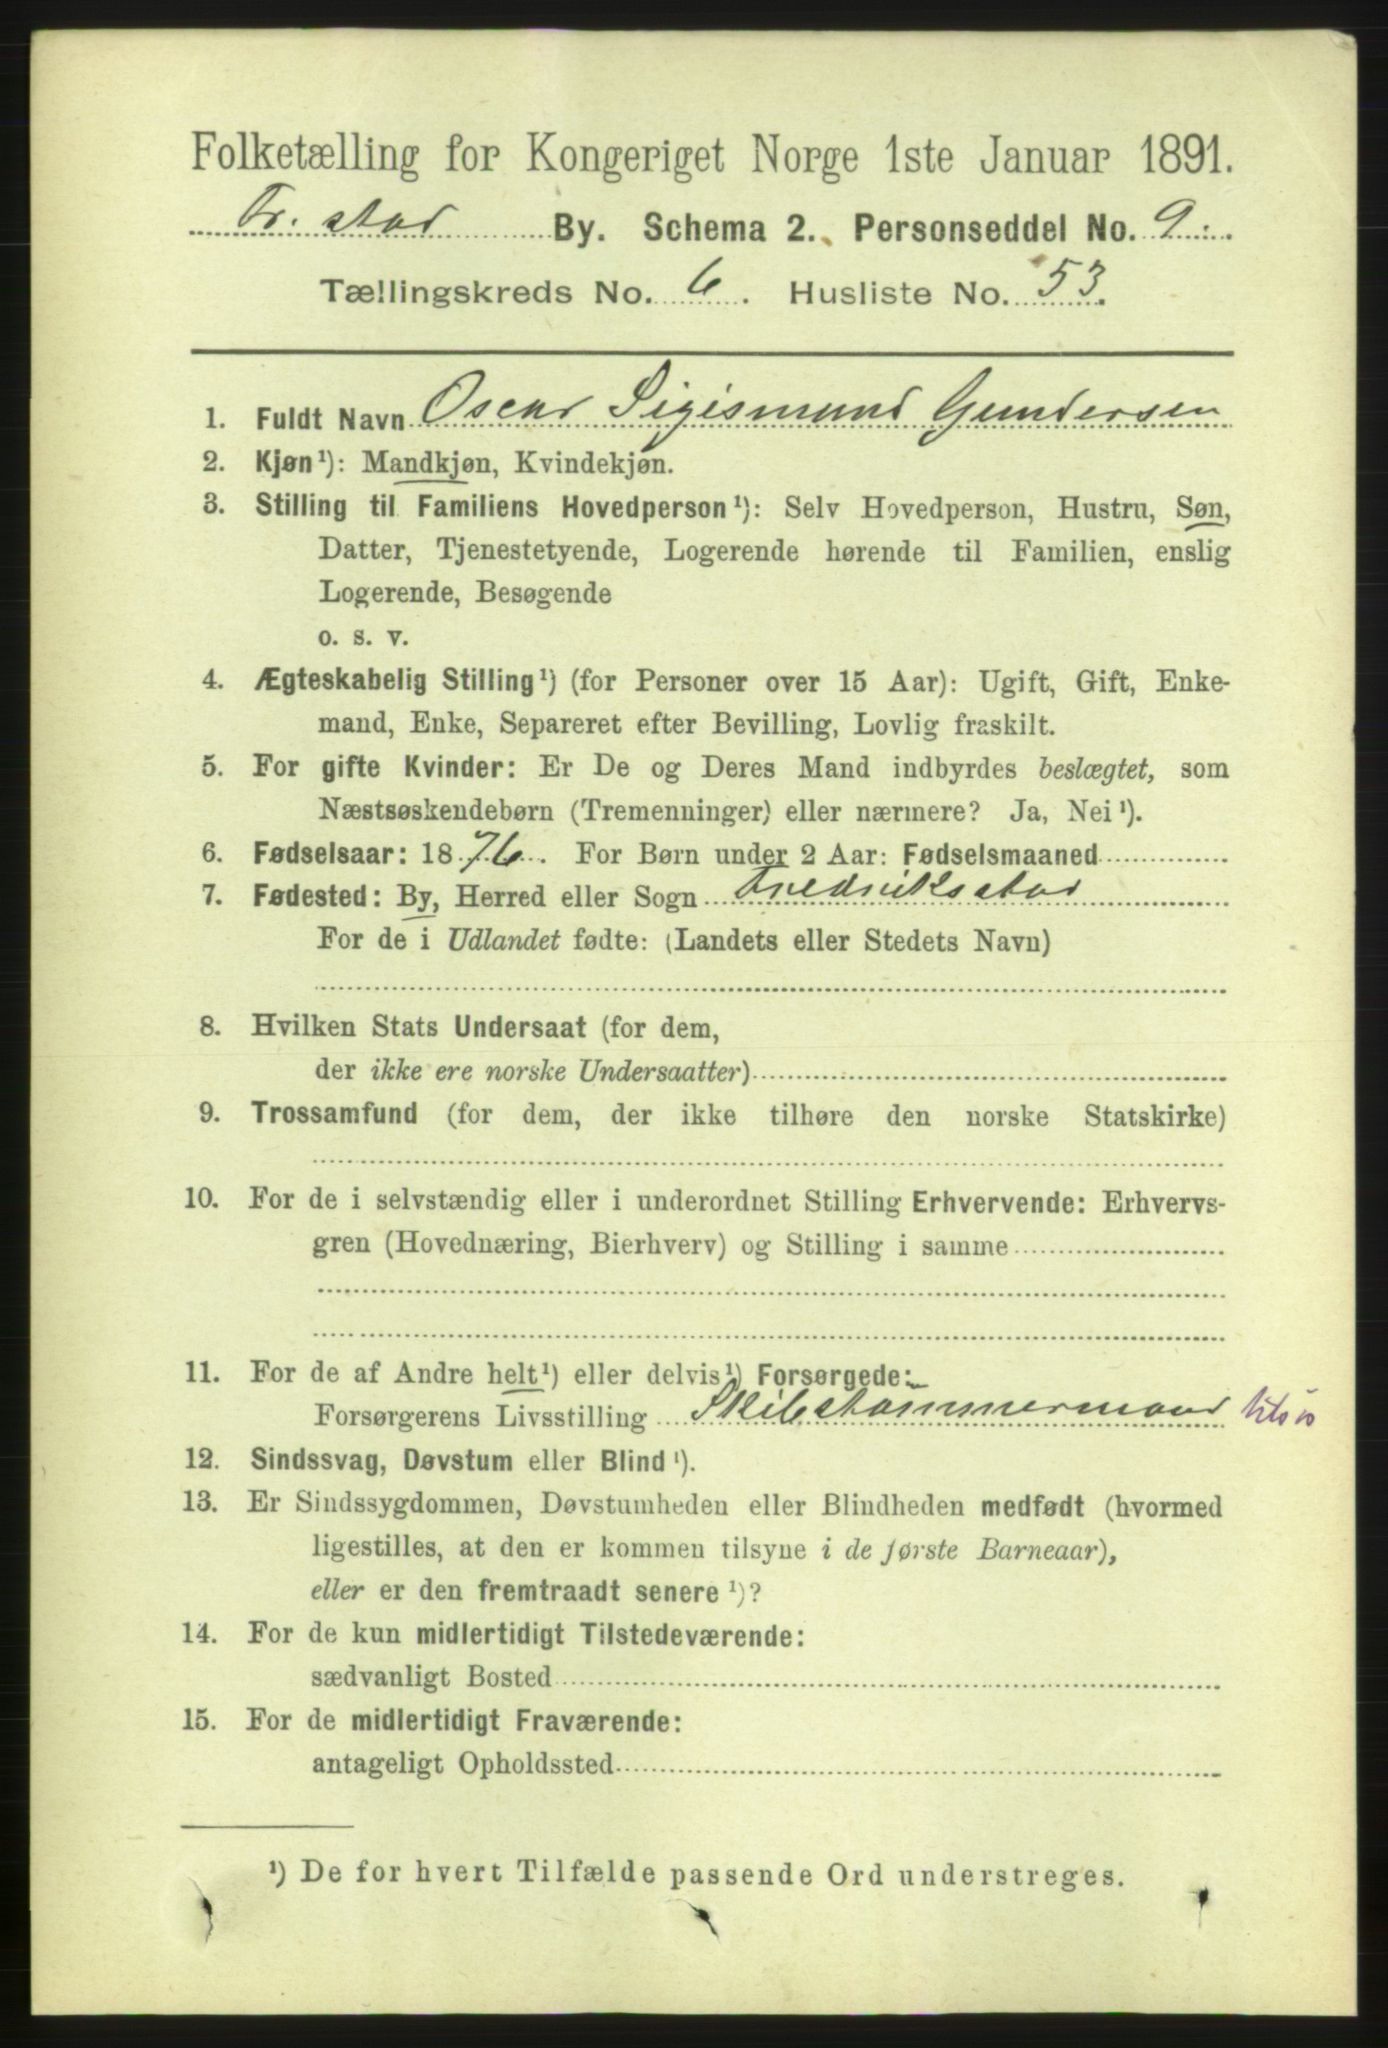 Folketælling for Kongeriget Norge 1ste Januar 1891.
Fr. stad By. Schema 2. Personseddel No. 9.
Tællingskreds No. 6. Husliste No. 53.
1. Fuldt Navn Oscar Sigismund Gundersen
2. Kjøn¹): Mandkjøn, Kvindekjøn.
3. Stilling til Familiens Hovedperson¹): Selv Hovedperson, Hustru, Søn,
Datter, Tjenestetyende, Logerende hørende til Familien, enslig
Logerende, Besøgende
o. s. v.
4. Ægteskabelig Stilling¹) (for Personer over 15 Aar): Ugift, Gift, Enke-
mand, Enke, Separeret efter Bevilling, Lovlig fraskilt.
5. For gifte Kvinder: Er De og Deres Mand indbyrdes beslægtet, som
Næstsøskendebørn (Tremenninger) eller nærmere? Ja, Nei¹).
6. Fødselsaar: 1876. For Børn under 2 Aar: Fødselsmaaned
7. Fødested: By, Herred eller Sogn Fredriksstad
For de i Udlandet fødte: (Landets eller Stedets Navn)
8. Hvilken Stats Undersaat (for dem,
der ikke ere norske Undersaatter)
9. Trossamfund (for dem, der ikke tilhøre den norske Statskirke)
10. For de i selvstændig eller i underordnet Stilling Erhvervende: Erhvervs-
gren (Hovednæring, Bierhverv) og Stilling i samme
11. For de af Andre helt¹) eller delvis¹) Forsørgede:
Forsørgerens Livsstilling Skibstømmermand
12. Sindssvag, Døvstum eller Blind¹).
13. Er Sindssygdommen, Døvstumheden eller Blindheden medfødt (hvormed
ligestilles, at den er kommen tilsyne i de første Barneaar),
eller er den fremtraadt senere¹)?
14. For de kun midlertidigt Tilstedeværende:
sædvanligt Bosted
15. For de midlertidigt Fraværende:
antageligt Opholdssted
¹) De for hvert Tilfælde passende Ord understreges.